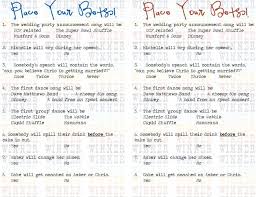 Place Your Bets!
1. The wedding party announcement song will be
UCF related The Super Bowl Shuffle
Mumford & Sons Disney
2. Michelle will cry during her speech.
Yes No
3. Somebody's speech will contain the words,
"can you believe Chris is getting married?!"
Once Twice Thrice Never
4. The first dance song will be
Dave Matthews Band A cheesy love song
Disney A band you haven't heard of
5. The first group dance will be
Electric Slide Wobble
Cupid Shuffle Macarena
6. Somebody will spill their drink before the
cake is cut.
Yes No
7. will change her shoes.
Yes No
8. Cake will get smashed on or Chris.
Yes No
Place Your Bets!
1. The wedding party announcement song will be
UCF related The Super Bowl Shuffle
Mumford & Sons Disney
2. Michelle will cry during her speech.
Yes No
3. Somebody's speech will contain the words,
"can you believe Chris is getting married?!"
Once Twice Thrice Never
4. The first dance song will be
Dave Matthews Band A cheesy love song
Disney A band you haven't heard of
5. The first group dance will be
Electric Slide Wobble
Cupid Shuffle Macarena
6. Somebody will spill their drink before the
cake is cut.
Yes No
7. will change her shoes.
Yes No
8. Cake will get smashed on or Chris.
Yes No